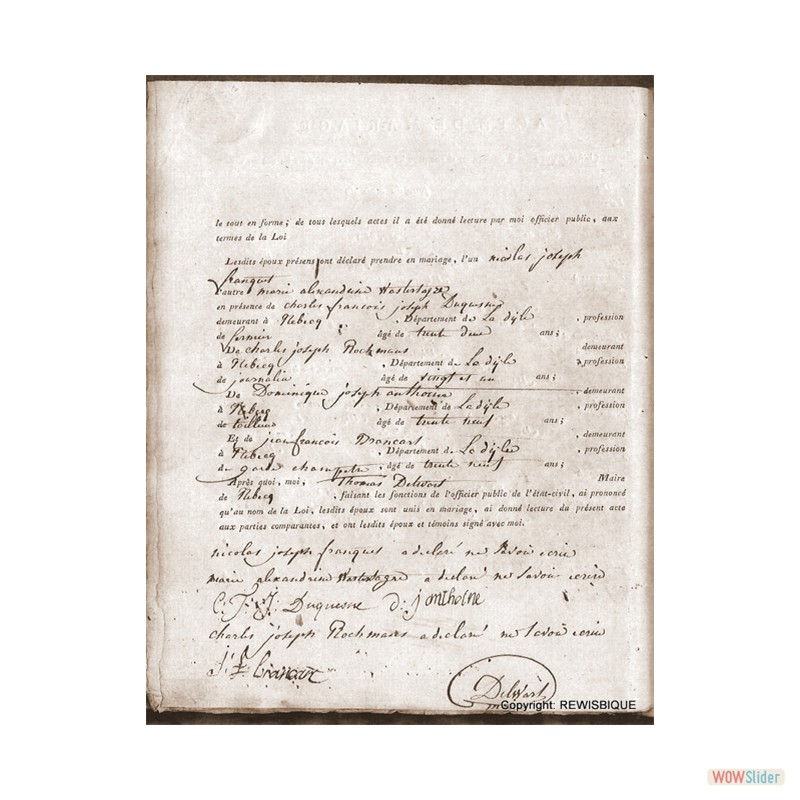 le tout en forme ; de tous lesquels actes il a été donné lecture par moi officier public, aux
termes de la Loi
Lesdits époux présens ont déclaré prendre en mariage, l'un nicolas joseph
franquet
l'autre marie alexandrine
en présence de charles francois joseph Duquesne
demeurant à Rebecq . Département de La dÿle , profession
de fermier âgé de trente deux ans ;
De charles joseph Rockmans demeurant
à Rebecq . Département de La dÿle , profession
de journalier âgé de vingt et un ans ;
De Dominique joseph anthoine , demeurant
à Rebecq . Département de La dÿle profession
de tailleur âgé de trente neuf ans ;
Et de jean francois Brancart , demeurant
à Rebecq . Département de La dÿle profession
de garde champetre , âgé de trente neuf ans ;
Après quoi, moi, Thomas Delwart Maire
de Rebecq , faisant les fonctions de l'officier public de l'état-civil, ai prononcé
qu'au nom de la Loi, lesdits époux sont unis en mariage, ai donné lecture du présent acte
aux parties comparantes, et ont lesdits époux et témoins signé avec moi.
nicolas joseph franquet a declaré ne savoir ecrire
marie alexandrine a declaré ne savoir ecrire
C: F: J: Duquesne D: j anthoine
charles joseph Rockmans a declaré ne savoir ecrire
j: f: brancart
Delwart
Copyright: REWISBIQUE
WOWSlider